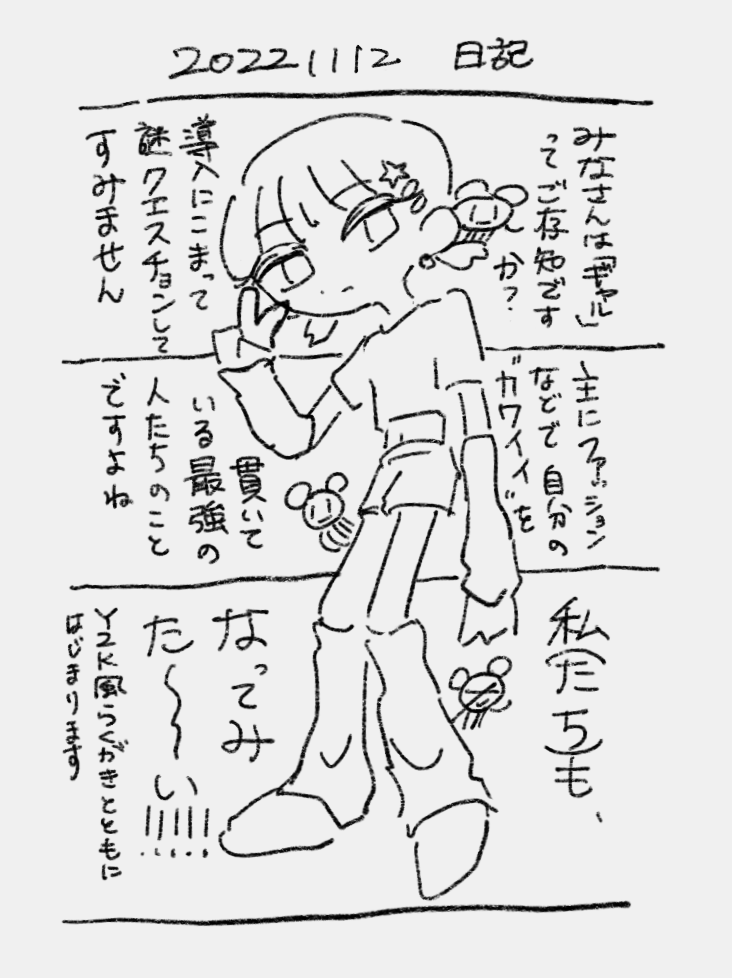 20221112 日記
みなさんは「ギャル」
ってご存知です
か？
導入にこまって
謎クエスチョンして
すみません
主にファッション
などで自分の
"カワイイ"を
貫いて
いる最強の
人たちのこと
ですよね
私(たち)も、
なってみ
た〜〜い!!!!!
Y2K風らくがきとともに
はじまります